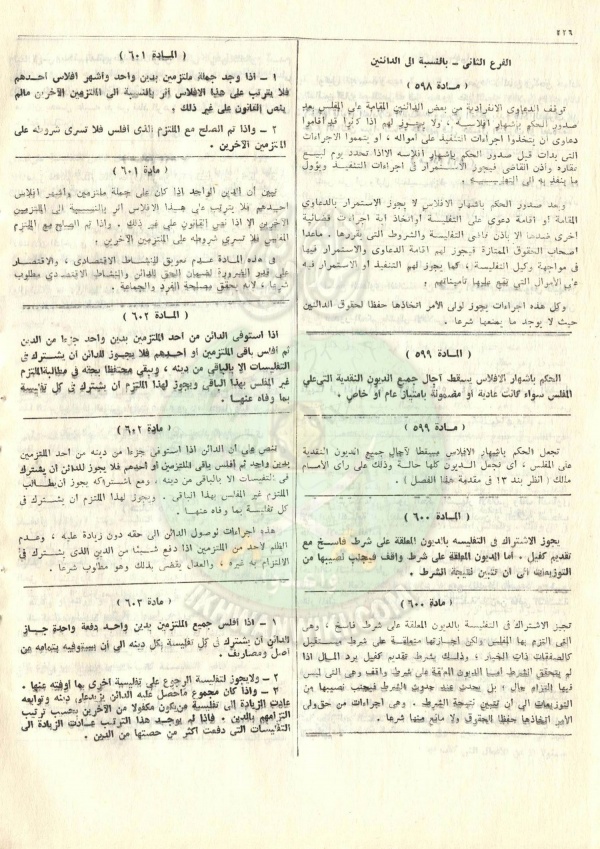 ٤٢٦
الفرع الثانى - بالنسبة الى الدائنين
( مادة ٥٩٨ )
توقف الدعاوى الانفرادية من بعض الدائنين المقامة على المفلس بعد
صدور الحكم باشهار افلاسه ، ولا يجوز لهم اذا كانوا قد أقاموا
دعاوى أن يتخذوا اجراءات التنفيذ على أمواله ، أو يتموا الاجراءات
التى بدأت قبل صدور الحكم باشهار افلاسه الا اذا تحدد يوم لبيع
عقاره وأذن القاضى فيجوز الاستمرار فى اجراءات التنفيذ ويؤول
ما ينفذ به الى التفليسة .
وبعد صدور الحكم باشهار الافلاس لا يجوز الاستمرار بالدعاوى
المقامة أو اقامة دعوى على التفليسة أو اتخاذ أية اجراءات قضائية
أخرى ضدها الا باذن قاضى التفليسة والشروط التى يقررها . ماعدا
أصحاب الحقوق الممتازة فيجوز لهم اقامة الدعوى والاستمرار فيها
فى مواجهة وكيل التفليسة ، كما يجوز لهم التنفيذ أو الاستمرار فيه
على الأموال التى تقع عليها تأميناتهم .
وكل هذه اجراءات يجوز لولى الأمر اتخاذها حفظا لحقوق الدائنين
حيث لا يوجد ما يمنعها شرعا .
( المادة ٥٩٩ )
الحكم باشهار الافلاس يسقط آجال جميع الديون النقدية التى على
المفلس سواء كانت عادية أو مضمونة بامتياز عام أو خاص .
( مادة ٥٩٩ )
تجعل الحكم باشهار الافلاس مسقطا لآجال جميع الديون النقدية
على المفلس ، أى تجعل الديون كلها حالة وذلك على رأى الامام
مالك ( انظر بند ١٣ فى مقدمة هذا الفصل ) .
( المادة ٦٠٠ )
يجوز الاشتراك فى التفليسة بالديون المعلقة على شرط فاسخ مع
تقديم كفيل . أما الديون المعلقة على شرط واقف فيجنب نصيبها من
التوزيعات الى أن تتبين نتيجة الشرط .
( مادة ٦٠٠ )
تجيز الاشتراك فى التفليسة بالديون المعلقة على شرط فاسخ ، وهى
التى التزم بها المفلس ولكن اجازتها متعلقة على شرط مستقبل
كالصفقات ذات الخيار ، وذلك بشرط تقديم كفيل يرد المال اذا
لم يتحقق الشرط أما الديون المعلقة على شرط واقف وهى التى ليس
فيها التزام حال ، بل يحدث عند حدوث الشرط فيجنب نصيبها من
التوزيعات الى أن تتبين نتيجة الشرط . وهى اجراءات من حق ولى
الأمر اتخاذها حفظا الحقوق ولا مانع منها شرعا .
( المادة ٦٠١ )
١ - اذا وجد جملة ملتزمين بدين واحد وأشهر افلاس أحدهم
فلا يترتب على هذا الافلاس أثر بالنسبة الى الملتزمين الآخرين مالم
ينص القانون على غير ذلك .
٢ - واذا تم الصلح مع الملتزم الذى أفلس فلا تسرى شروطه على
الملتزمين الآخرين .
( مادة ٦٠١ )
تبين أن الدين الواحد اذا كان على جملة ملتزمين وأشهر افلاس
أحدهم فلا يترتب على هذا الافلاس أثر بالنسبة الى الملتزمين
الآخرين الا اذا نص القانون على غير ذلك . واذا تم الصلح مع الملتزم
المفلس فلا تسرى شروطه على الملتزمين الآخرين .
فى هذه المادة عدم تعويق للنشاط الاقتصادى ، والاقتصار
على قدر الضرورة لضمان الحق للدائن والنشاط الاقتصادى مطلوب
شرعا ، لأنه يحقق مصلحة الفرد والجماعة .
( المادة ٦٠٢
اذا استوفى الدائن من أحد الملتزمين بدين واحد جزءا من الدين
ثم أفلس باقى الملتزمين أو أحدهم فلا يجوز للدائن أن يشترك فى
التفليسات الا بالباقى من دينه ، ويبقى محتفظا بحقه فى مطالبة الملتزم
غير المفلس بهذا الباقى ويجوز لهذا الملتزم أن يشترك فى كل تفليسة
بما وفاه عنها .
( مادة ٦٠٢ )
تنص على أن الدائن اذا استوفى جزءا من دينه من أحد الملتزمين
بدين واحد ثم أفلس باقى الملتزمين أو أحدهم فلا يجوز للدائن أن يشترك
فى التفليسات الا بالباقى من دينه ، ومع اشتراكه يجوز أن يطالب
الملتزم غير المفلس بهذا الباقى . ويجوز لهذا الملتزم أن يشترك فى
كل تفليسة بما وفاه عنها .
هذه اجراءات لوصول الدائن الى حقه دون زيادة عليه ، وعدم
الظلم لأحد من الملتزمين اذا دفع شيئا من الدين الذى يشترك فى
الالتزام به غيره ، والعدل يقضى بذلك وهو مطلوب شرعا .
( مادة ٦٠٣ )
١ - اذا أفلس جميع الملتزمين بدين واحد دفعة واحدة جاز
للدائن أن يشترك فى كل تفليسة بكل دينه الى أن يستوفيه بتمامه من
أصل ومصاريف .
٢ - ولا يجوز لتفليسة الرجوع على تفليسة أخرى بما أوفته عنها .
٣ - واذا كان مجموع ما حصل عليه الدائن يزيد على دينه وتوابعه
عادت الزيادة الى تفليسة من يكون مكفولا من الآخرين بحسب ترتيب
التزامهم بالدين . فاذا لم يوجد هذا الترتيب عادت الزيادة الى
التفليسات التى دفعت أكثر من حصتها من الدين .